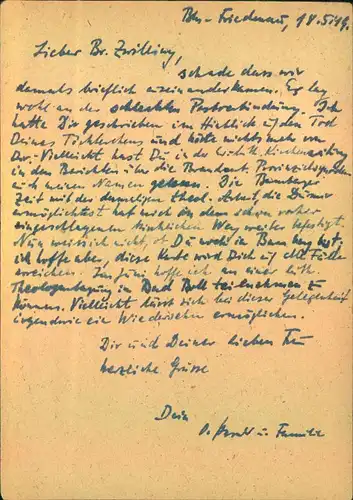 Bln-Friedenau, 18.5.49.
Lieber Br. Zwilling,
schade dass wir
damals brieflich auseinanderkamen. Es lag
wohl an der schlechten Postverbindung. Ich
hatte Dir geschrieben im Hinblick auf den Tod
Deines Töchterchens und hörte nichts mehr von
Dir. Vielleicht hast Du in der Kirchenzeitung
in den Berichten über die Brandenb. Provinzialsynode
auch meinen Namen gelesen. Die Bamberger
Zeit mit der damaligen theol. Arbeit, die Du mir
ermöglichtest hat mich in dem schon vorher
eingeschlagenen kirchlichen Weg weiter befestigt.
Nun weiss ich nicht, ob Du noch in Bamberg bist,
ich hoffe aber, diese Karte wird Dich auf alle Fälle
erreichen. Im Juni hoffe ich an einer luth.
Theologentagung in Bad Boll teilnehmen zu
können. Vielleicht lässt sich bei dieser Gelegenheit
irgendwie ein Wiedersehen ermöglichen.
Dir und Deiner lieben Frau
herzliche Grüsse
Dein
u. Familie